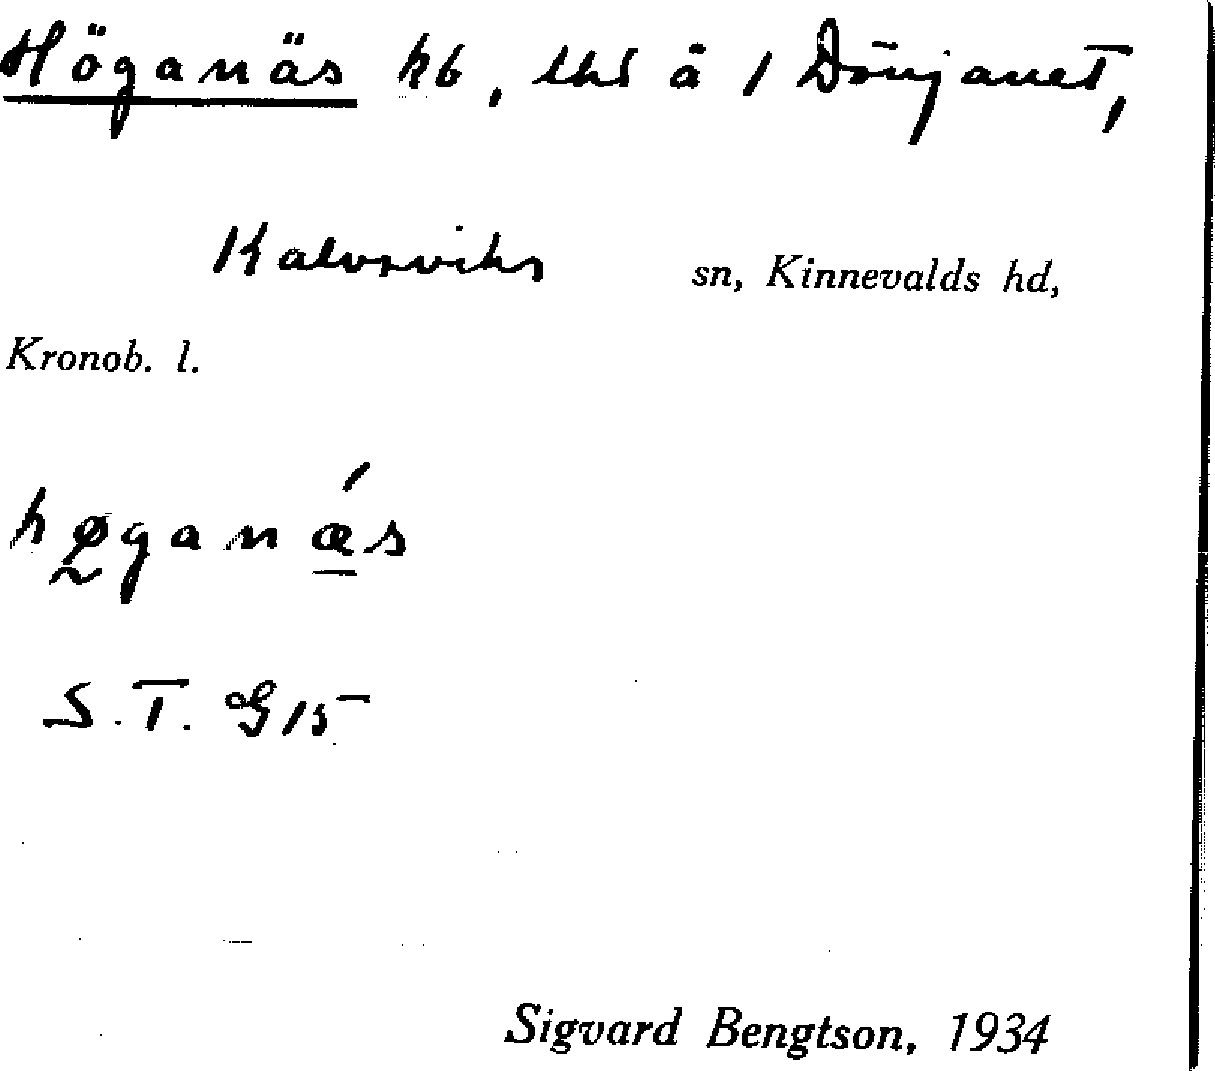 Höganäs hb, lhs å 1 Dönjanet,
Kalvsviks sn, Kinnevalds hd,
Kronob. l.
høganǽs
S.T. G15
Sigvard Bengtson, 1934